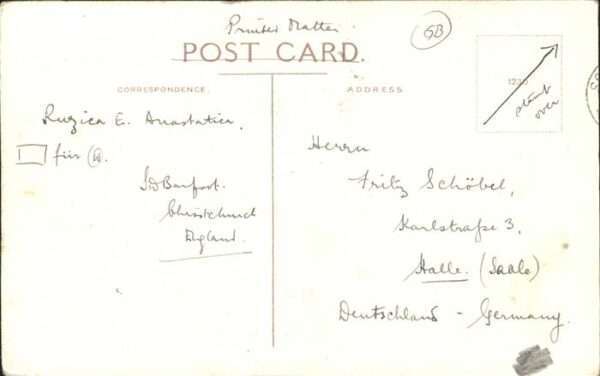 Printed Matter
GB
POST CARD.
CORRESPONDENCE.
ADDRESS
stamp
over
Ruzica E. Anastatica.
für
Christchurch
England.
Herrn
Fritz Schöbel,
Karlstraße 3,
Halle. (Saale)
Deutschland - Germany.